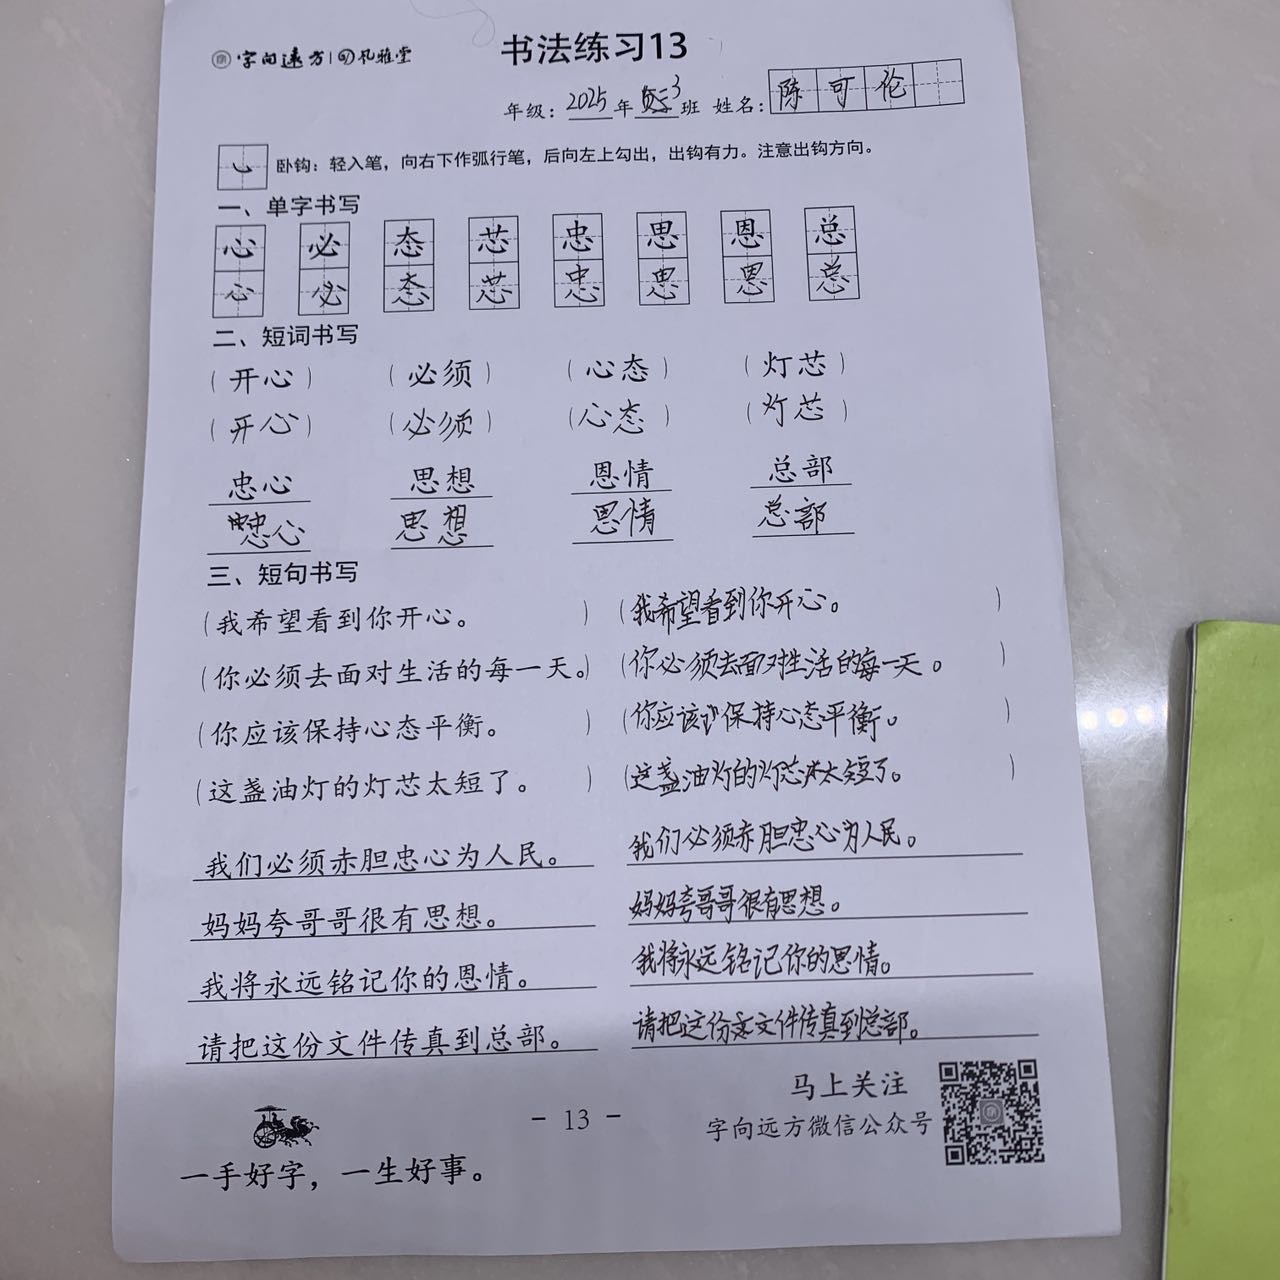 字向远方 | 风雅堂
书法练习13
年级：2025年 3班 姓名：陈可伦
卧钩：轻入笔，向右下作弧行笔，后向左上勾出，出钩有力。注意出钩方向。
一、单字书写
心 必 态 芯 忠 思 恩 总
心 必 态 芯 忠 思 恩 总
二、短词书写
（开心） （必须） （心态） （灯芯）
（开心） （必须） （心态） （灯芯）
忠心 思想 恩情 总部
忠心 思想 恩情 总部
三、短句书写
（我希望看到你开心。 ） （我希望看到你开心。 ）
（你必须去面对生活的每一天。） （你必须去面对生活的每一天。 ）
（你应该保持心态平衡。 ） （你应该保持心态平衡。 ）
（这盏油灯的灯芯太短了。 ） （这盏油灯的灯芯太短了。 ）
我们必须赤胆忠心为人民。 我们必须赤胆忠心为人民。
妈妈夸哥哥很有思想。 妈妈夸哥哥很有思想。
我将永远铭记你的恩情。 我将永远铭记你的恩情。
请把这份文件传真到总部。 请把这份文件传真到总部。
马上关注
- 13 -
字向远方微信公众号
一手好字，一生好事。